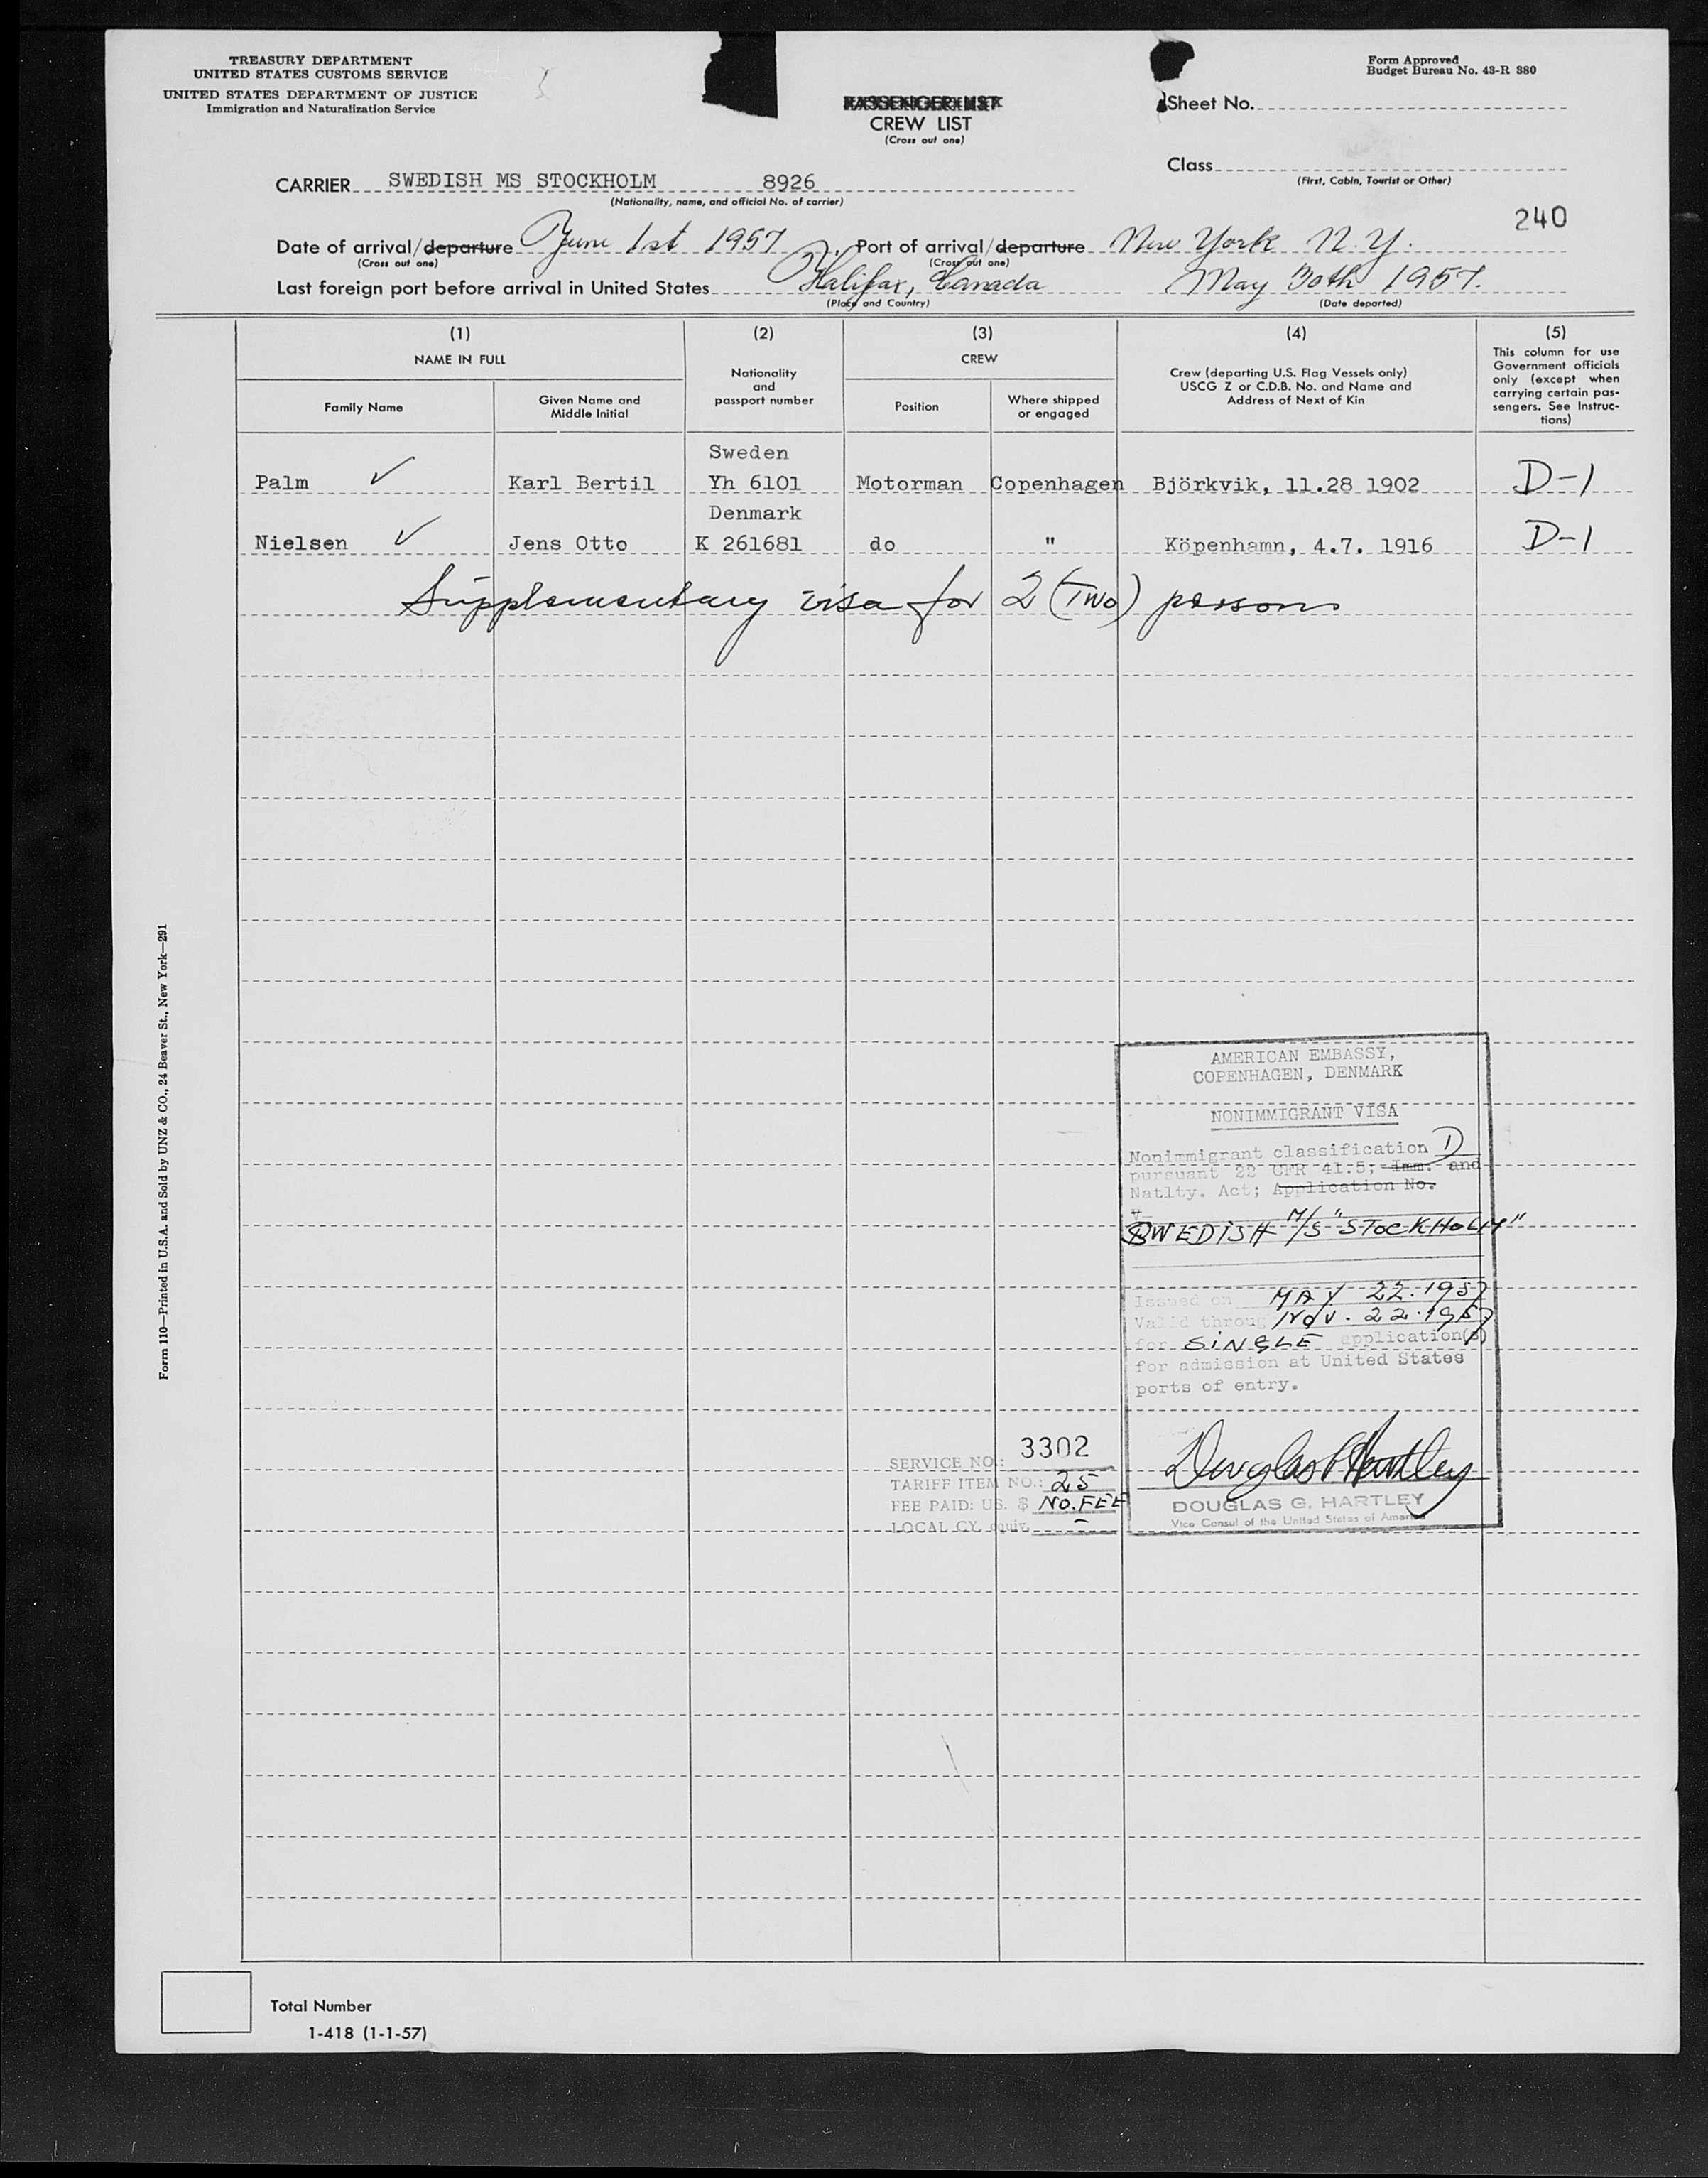 TREASURY DEPARTMENT
UNITED STATES CUSTOMS SERVICE
UNITED STATES DEPARTMENT OF JUSTICE
Immigration and Naturalization Service
PASSENGER LIST
CREW LIST
(Cross out one)
Form Approved
Budget Bureau No. 43-R 380
Sheet No.
Class
(First, Cabin, Tourist or Other)
CARRIER SWEDISH MS STOCKHOLM 8926
(Nationality, name, and official No. of carrier)
240
Date of arrival/departure June 1st 1957 Port of arrival/departure New York N.Y.
(Cross out one) (Cross out one)
Last foreign port before arrival in United States Halifax, Canada May 30th 1957.
(Place and Country) (Date departed)
(1) (2) (3) (4) (5)
NAME IN FULL
Family Name
Given Name and Middle Initial
Nationality and passport number
CREW
Position
Where shipped or engaged
Crew (departing U.S. Flag Vessels only)
USCG Z or C.D.B. No. and Name and
Address of Next of Kin
This column for use
Government officials
only (except when
carrying certain pas-
sengers. See Instruc-
tions)
Sweden
Palm ✓ Karl Bertil Yh 6101 Motorman Copenhagen Björkvik, 11.28 1902 D-1
Denmark
Nielsen ✓ Jens Otto K 261681 do " Köpenhamn, 4.7. 1916 D-1
Supplementary visa for 2 (Two) persons
AMERICAN EMBASSY,
COPENHAGEN, DENMARK
NONIMMIGRANT VISA
Nonimmigrant classification D
pursuant 22 CFR 41.5; Imm. and
Natlty. Act; Application No.
V-
SWEDISH M/S "STOCKHOLM"
Issued on MAY 22. 1957
Valid through Nov. 22. 1957
for SINGLE application(s)
for admission at United States
ports of entry.
Douglas G Hartley
DOUGLAS G. HARTLEY
Vice Consul of the United States of America
SERVICE NO.: 3302
TARIFF ITEM NO.: 25
FEE PAID: US. $ NO. FEE
LOCAL CY. equiv. -
Form 110—Printed in U.S.A. and Sold by UNZ & CO., 24 Beaver St., New York—291
Total Number
1-418 (1-1-57)